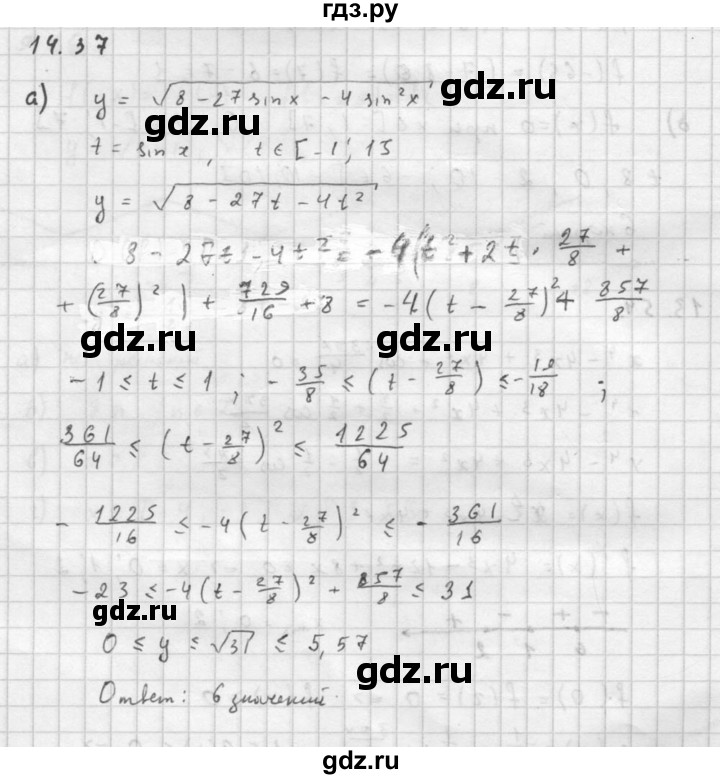 гдз.ру
14.37
а) y = √(8 - 27 sin x - 4 sin²x)
gdz.ru
gdz.ru
t = sin x, t ∈ [-1; 1]
y = √(8 - 27t - 4t²)
gdz.ru
8 - 27t - 4t² = -4(t² + 2t · 27/8 +
+ (27/8)²) + 729/16 + 8 = -4(t - 27/8)² + 857/8
gdz.ru
gdz.ru
-1 ≤ t ≤ 1; -35/8 ≤ (t - 27/8) ≤ -19/18;
gdz.ru
361/64 ≤ (t - 27/8)² ≤ 1225/64
gdz.ru
-1225/16 ≤ -4(t - 27/8)² ≤ -361/16
gdz.ru
-23 ≤ -4(t - 27/8)² + 857/8 ≤ 31
gdz.ru
0 ≤ y ≤ √31 ≤ 5,57
gdz.ru
Ответ: 6 значений.
gdz.ru
gdz.ru